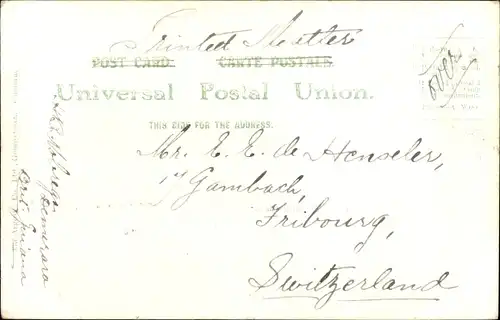 Printed Matter
POST CARD. CARTE POSTALE.
Universal Postal Union.
THIS SIDE FOR THE ADDRESS.
over
Mr. E. E. de Henseler,
Gambach,
Fribourg,
Switzerland
Demerara
Brit. Guiana